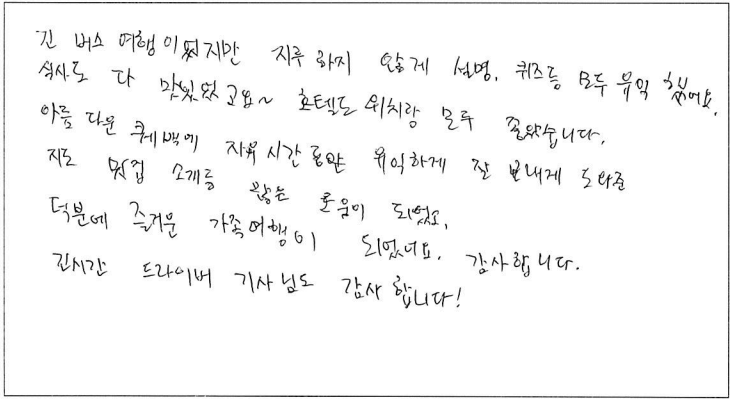 긴 버스 여행이였지만 지루하지 않게 설명, 퀴즈등 모두 유익했어요.
식사도 다 맛있었고요~ 호텔도 위치랑 모두 좋았습니다.
아름다운 퀘백에 자유시간 동안 유익하게 잘 보내게 도와준
지도 맛집 소개등 많은 도움이 되었고,
덕분에 즐거운 가족여행이 되었어요. 감사합니다.
긴시간 드라이버 기사님도 감사합니다!